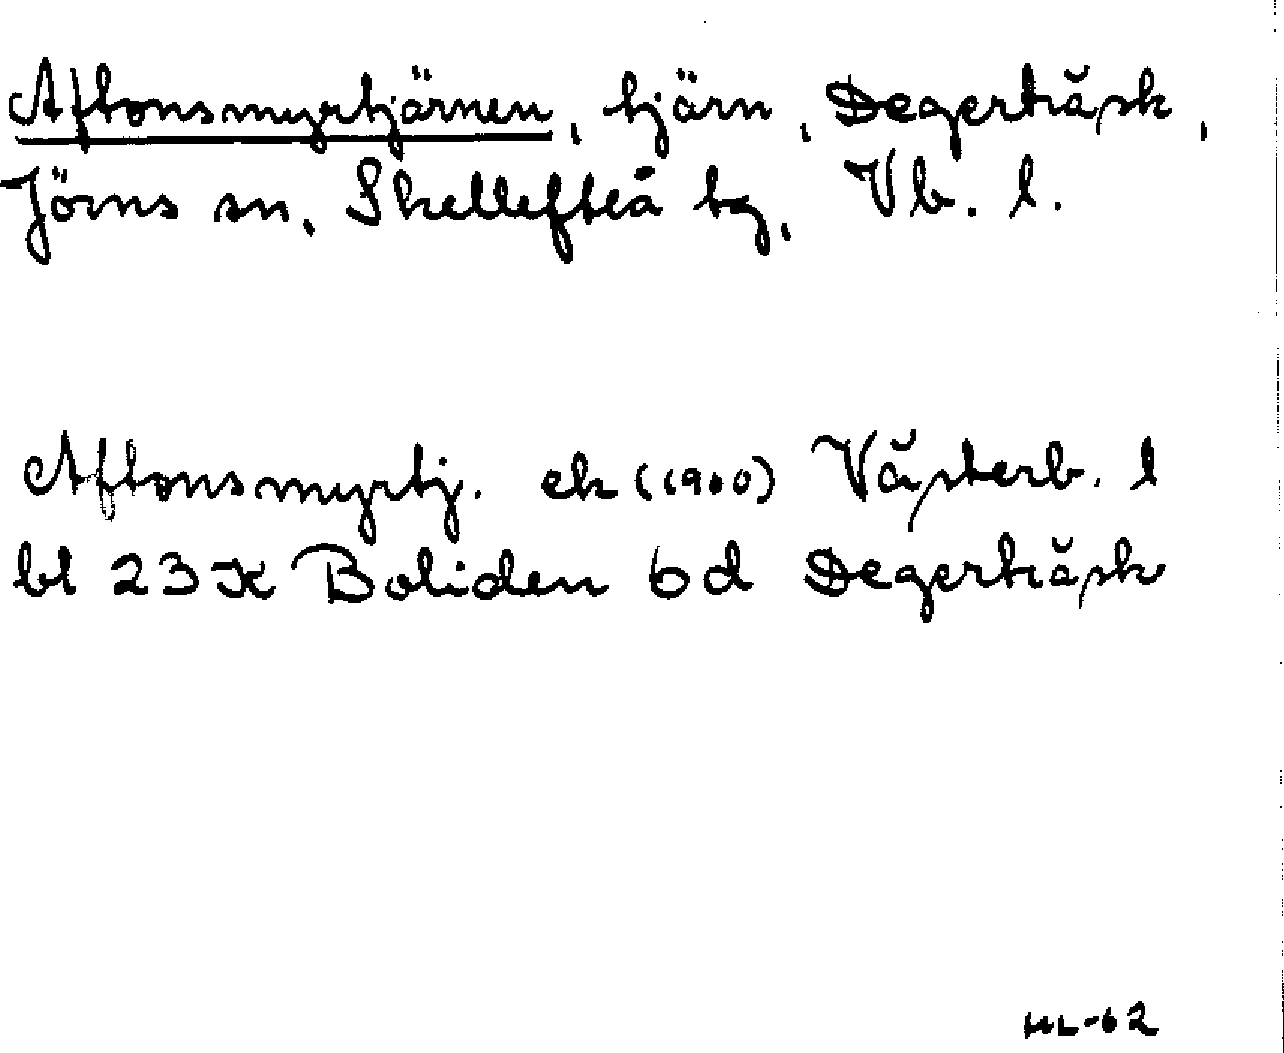 Aftonsmyrtjärnen, tjärn, Degerträsk,
Jörns sn, Skellefteå tg, Vb. l.
Aftonsmyrtj. ek (1960) Västerb. l
bl 23 K Boliden 6d Degerträsk
HL-62